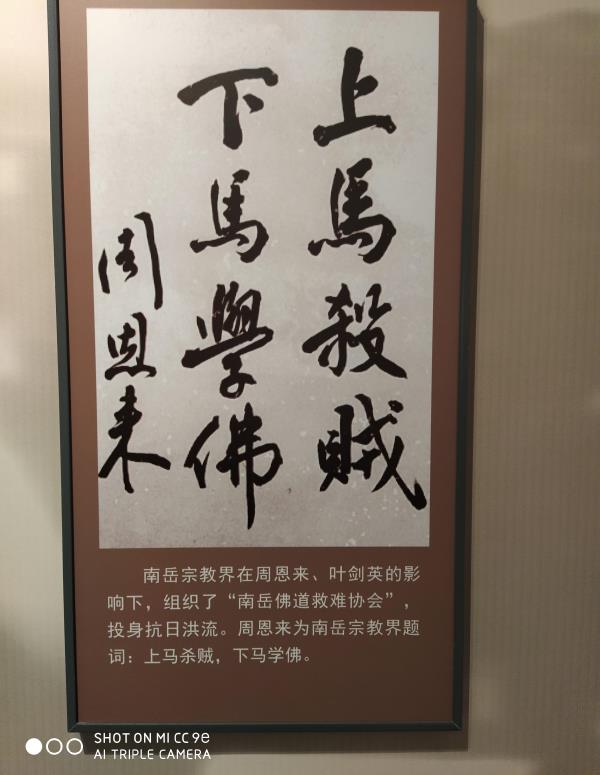 上馬殺賊
下馬學佛
周恩来
南岳宗教界在周恩来、叶剑英的影
响下，组织了“南岳佛道救难协会”，
投身抗日洪流。周恩来为南岳宗教界题
词：上马杀贼，下马学佛。
SHOT ON MI CC 9e
AI TRIPLE CAMERA